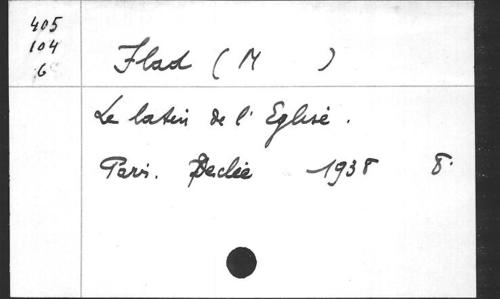 405
104
6
Flad ( M )
Le latin de l' Eglise .
Paris. Desclée 1938 8.